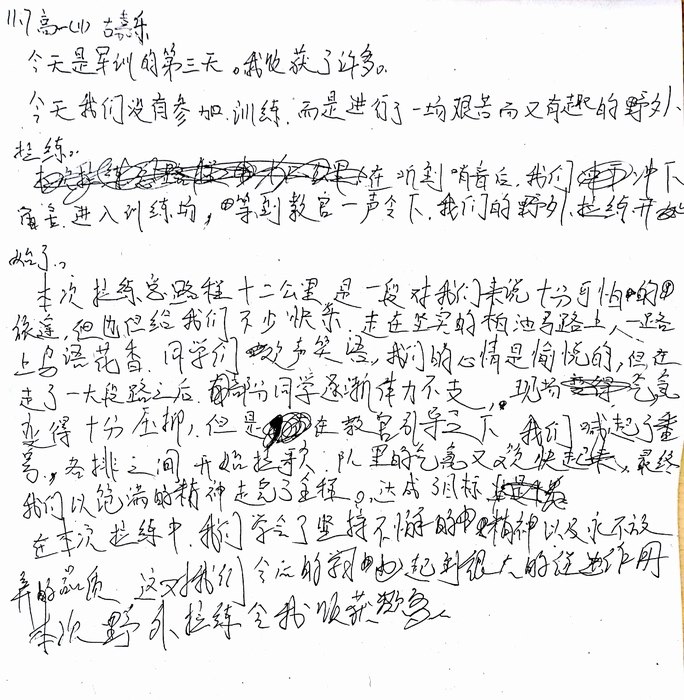 11.7 高一(11) 古嘉乐
今天是军训的第三天。我收获了许多。
今天我们没有参加训练.而是进行了一场艰苦而又有趣的野外
拉练。
在听到哨音后,我们冲下
宿舍.进入训练场,等到教官一声令下.我们的野外拉练开
始了。
本次拉练总路程十二公里是一段对我们来说十分可怕的
旅途,但也给我们不少快乐.走在坚实的柏油马路上,一路
上鸟语花香.同学们欢声笑语,我们的心情是愉悦的,但在
走了一大段路之后.有部分同学逐渐体力不支,现场气氛
变得十分压抑,但是在教官引导之下我们喊起了番
号,各排之间开始拉歌.队里的气氛又欢快起来,最终
我们以饱满的精神走完了全程。达成了目标
在本次拉练中.我们学会了坚持不懈的精神以及永不放
弃的品质.这对我们今后的学习起到很大的促进作用
本次野外拉练令我颂获颇多.